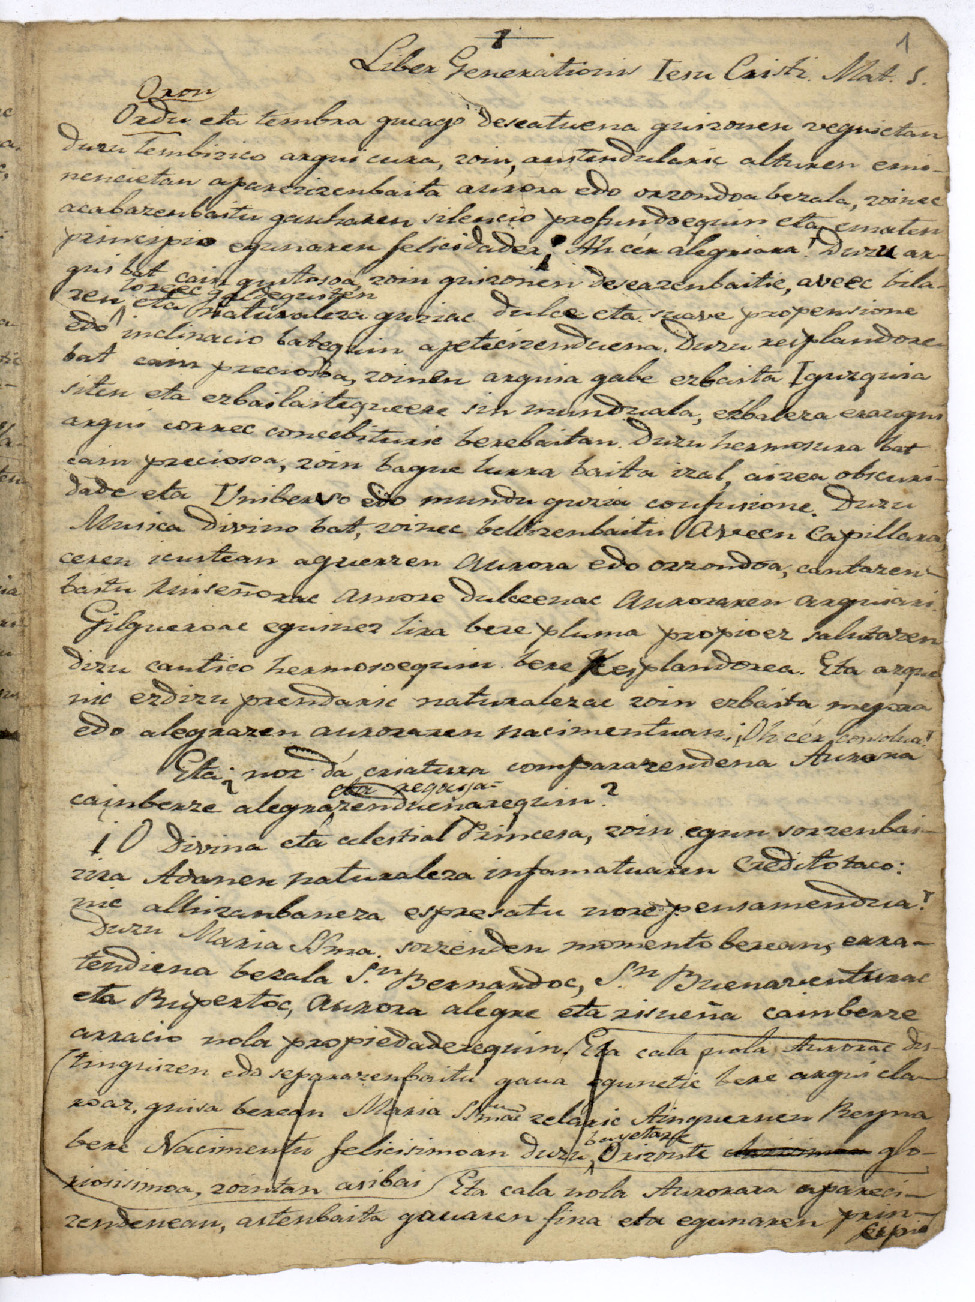 1
Liber Generationis Iesu Cristi. Mat. 1.
Oron
Ordu eta tembra gueago deseatuena guizonen veguietan
duzu tembizico argui cura, zoin, austendularic alturen emi-
nencietan aparezizenbaita aurora edo orzondoa bezala, zoinec
acabazenbaitu gauharen silencio profundoequin eta ematen
principio egunaren felicidadeei. Ah cér alegriara! Duzu ar-
gui bat cain gustosoa, zoin guizonen deseazenbaitie, aveec bila-
zen, eta naturaleza guziac dulce eta suave propensione
torzec festequizen
edo inclinacio batequin apetecizenduena. Duzu resplandore
bat cain preciosoa, zoinen arguia gabe ezbaita Iguzquia
siten eta ezbailasteque ere sin munduala, ezbaleza ezaugun
argui correc concebituric berebaitan. Duzu hermosura bat
cain preciosoa, zoin bague lurra baita izal, airea obscuri-
dade eta Universo edo mundu guzia confusione. Duzu
Musica divino bat, zoinec beltzenbaitu aveen Capillara,
ceren icustean aguerzen Aurora edo orzondoa, cantazen-
baitu Ruiseñorac amore dulceenac Auroraren arguiari.
Gilgueroac egunez lira bere pluma propioez salutazen
dizu cantico hermosoequin bere Resplandorea. Eta azque
nic ezdizu prendaric naturalezac zoin ezbaita mejora
edo alegrazen auroraren nacimentuan. ¡Oh cér consolua!
Eta; nor dá criatura comparazendena Aurora
eta regocija-
cainberze alegrazenduenarequin?
¡O Divina eta celestial Princesa, zoin egun sorzenbai-
zira Adanen naturaleza infamatuaren Creditotaco:
nic alhizanbaneza espresatu nore pensamendua!
Duzu Maria SSma. sorzenden momento berean, erra-
tendiena bezala Sn. Bernardoc, Sn. Buenaventurac
eta Rupertoc, Aurora alegre eta risueña cainberze
arracio nola propiedaderequin. Eta cala nola Aurorac dis-
tinguizen edo separazenbaitu gaua egunetic bere argui cla-
roaz, guisa berean Maria SSmac zelaric Ainguernen Reyna
bere Nacimentu felicisimoan duzu Orizonte glo-
riosisimoa, zointan asibai Eta cala nola Aurorara apareci-
zendenean, astenbaita gauaren fina eta egunaren prin-
cipio